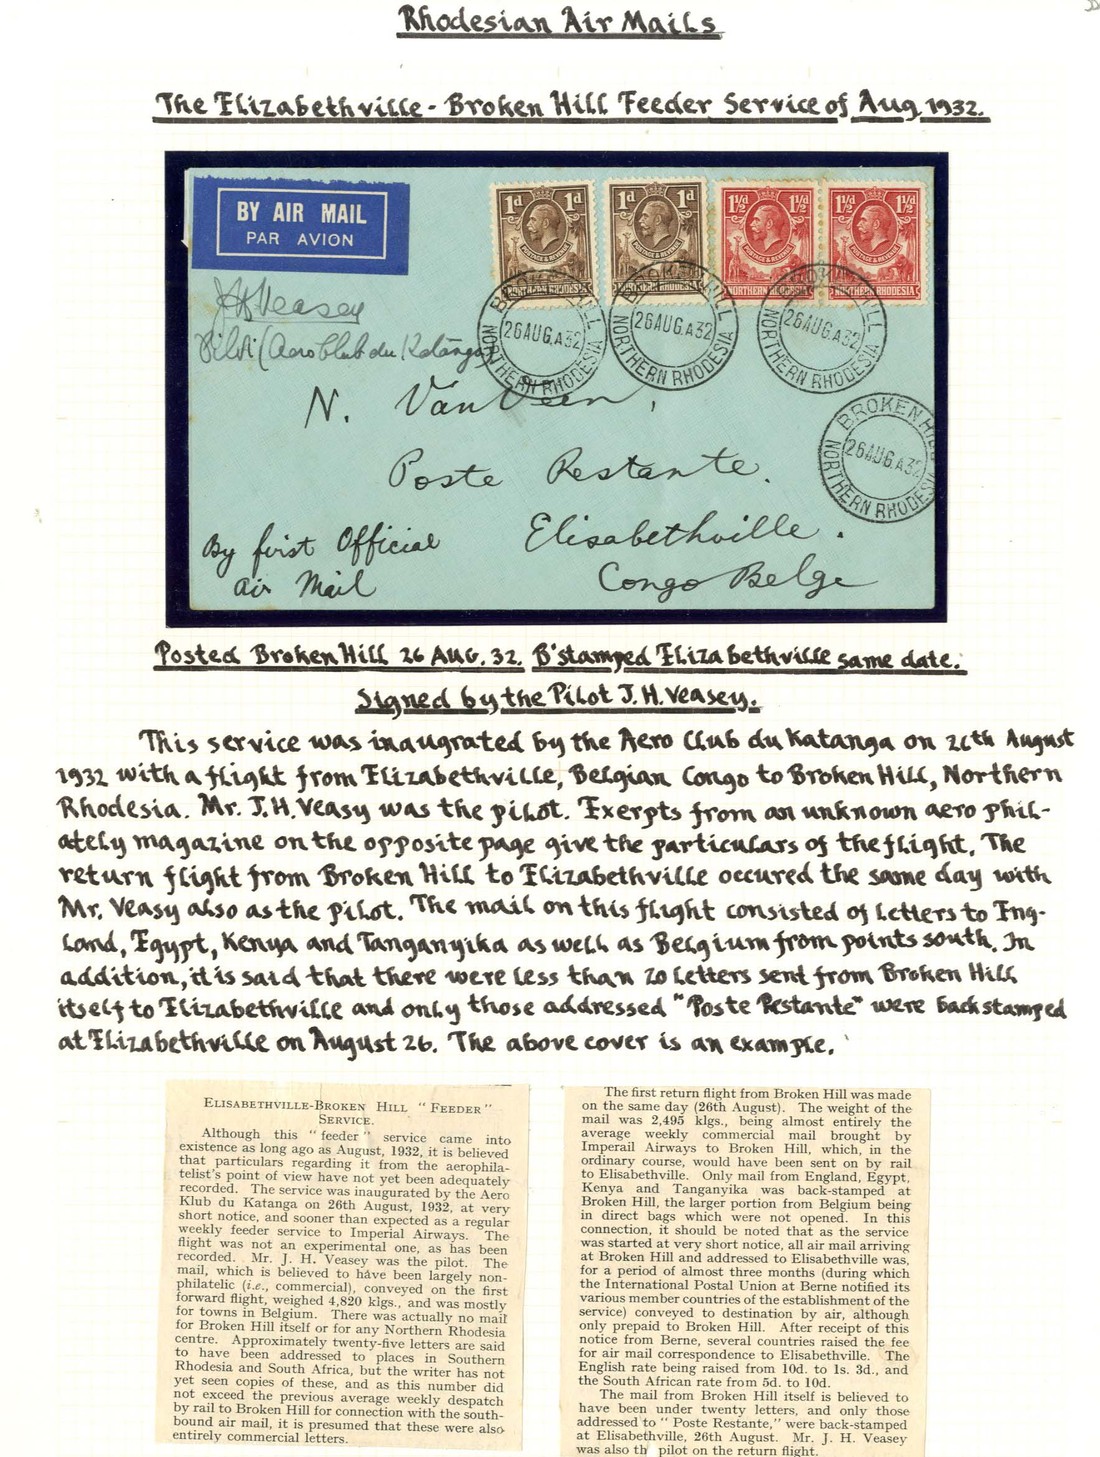 Rhodesian Air Mails
The Elizabethville - Broken Hill Feeder Service of Aug. 1932.
BY AIR MAIL
PAR AVION
1d 1d
1d 1d
1½d 1½d
1½d 1½d
POSTAGE & REVENUE
POSTAGE & REVENUE
POSTAGE & REVENUE
POSTAGE & REVENUE
NORTHERN RHODESIA
NORTHERN RHODESIA
NORTHERN RHODESIA
NORTHERN RHODESIA
BROKEN HILL
26AUG.A32
NORTHERN RHODESIA
BROKEN HILL
26AUG.A32
NORTHERN RHODESIA
BROKEN HILL
26AUG.A32
NORTHERN RHODESIA
BROKEN HILL
26AUG.A32
NORTHERN RHODESIA
J H Veasey
Pilot (Aero Club du Katanga)
N. Van Veen,
Poste Restante.
Elisabethville.
Congo Belge
By first Official
Air Mail
Posted Broken Hill 26 Aug. 32. B'stamped Elizabethville same date.
Signed by the Pilot J. H. Veasey.
This service was inaugrated by the Aero Club du Katanga on 26th August
1932 with a flight from Elizabethville, Belgian Congo to Broken Hill, Northern
Rhodesia. Mr. J. H. Veasy was the pilot. Exerpts from an unknown aero phil-
ately magazine on the opposite page give the particulars of the flight. The
return flight from Broken Hill to Elizabethville occured the same day with
Mr. Veasy also as the pilot. The mail on this flight consisted of letters to Eng-
land, Egypt, Kenya and Tanganyika as well as Belgium from points south. In
addition, it is said that there were less than 20 letters sent from Broken Hill
itself to Elizabethville and only those addressed "Poste Restante" were back stamped
at Elizabethville on August 26. The above cover is an example.
ELISABETHVILLE-BROKEN HILL "FEEDER"
SERVICE.
Although this "feeder" service came into
existence as long ago as August, 1932, it is believed
that particulars regarding it from the aerophila-
telist's point of view have not yet been adequately
recorded. The service was inaugurated by the Aero
Klub du Katanga on 26th August, 1932, at very
short notice, and sooner than expected as a regular
weekly feeder service to Imperial Airways. The
flight was not an experimental one, as has been
recorded. Mr. J. H. Veasey was the pilot. The
mail, which is believed to have been largely non-
philatelic (i.e., commercial), conveyed on the first
forward flight, weighed 4,820 klgs., and was mostly
for towns in Belgium. There was actually no mail
for Broken Hill itself or for any Northern Rhodesia
centre. Approximately twenty-five letters are said
to have been addressed to places in Southern
Rhodesia and South Africa, but the writer has not
yet seen copies of these, and as this number did
not exceed the previous average weekly despatch
by rail to Broken Hill for connection with the south-
bound air mail, it is presumed that these were also
entirely commercial letters.
The first return flight from Broken Hill was made
on the same day (26th August). The weight of the
mail was 2,495 klgs., being almost entirely the
average weekly commercial mail brought by
Imperail Airways to Broken Hill, which, in the
ordinary course, would have been sent on by rail
to Elisabethville. Only mail from England, Egypt,
Kenya and Tanganyika was back-stamped at
Broken Hill, the larger portion from Belgium being
in direct bags which were not opened. In this
connection, it should be noted that as the service
was started at very short notice, all air mail arriving
at Broken Hill and addressed to Elisabethville was,
for a period of almost three months (during which
the International Postal Union at Berne notified its
various member countries of the establishment of the
service) conveyed to destination by air, although
only prepaid to Broken Hill. After receipt of this
notice from Berne, several countries raised the fee
for air mail correspondence to Elisabethville. The
English rate being raised from 10d. to 1s. 3d., and
the South African rate from 5d. to 10d.
The mail from Broken Hill itself is believed to
have been under twenty letters, and only those
addressed to "Poste Restante," were back-stamped
at Elisabethville, 26th August. Mr. J. H. Veasey
was also th pilot on the return flight.